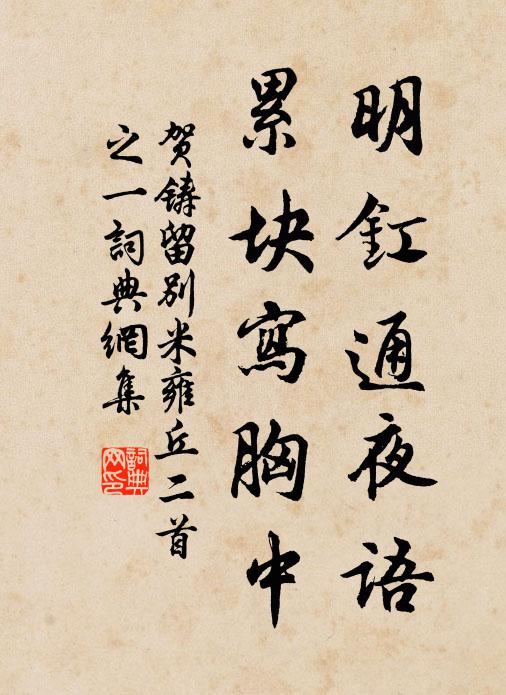 明釭通夜语
累块寫胸中
贺铸留别米雍丘二首
之一詞典網集
詞典
网印